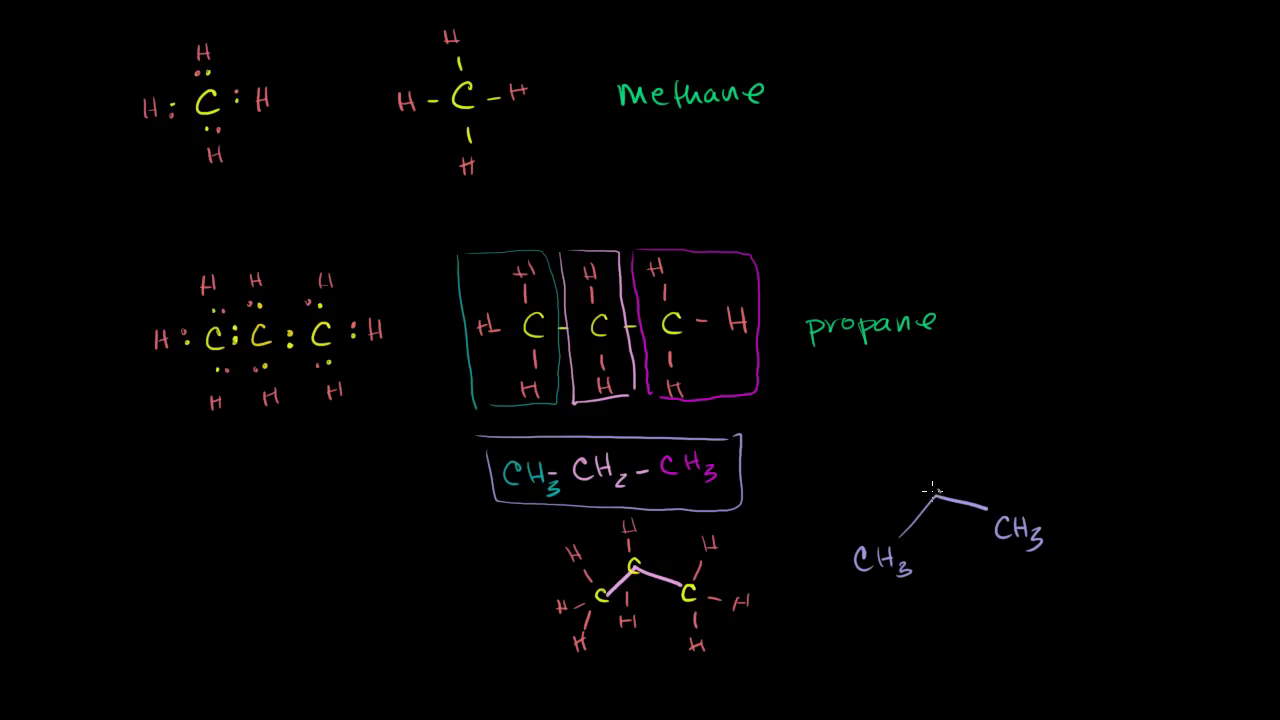 H
H : C : H
H
H
H - C - H
H
methane
H H H
H : C : C : C : H
H H H
H H H
H - C - C - C - H
H H H
propane
CH3 - CH2 - CH3
H
H H
C
H C C H
H H H
CH3 CH3